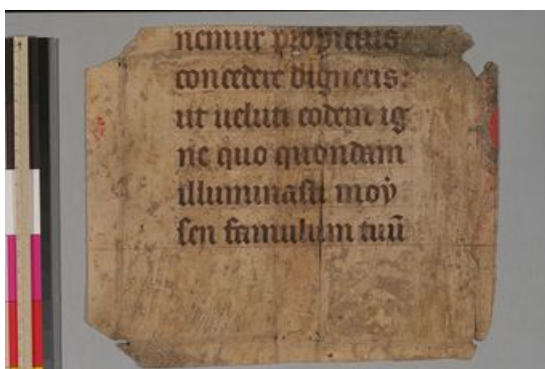 nemur propicius
concedere digneris:
ut ueluti eodem ig
ne quo quondam
illuminasti moẏ
sen famulum tuū